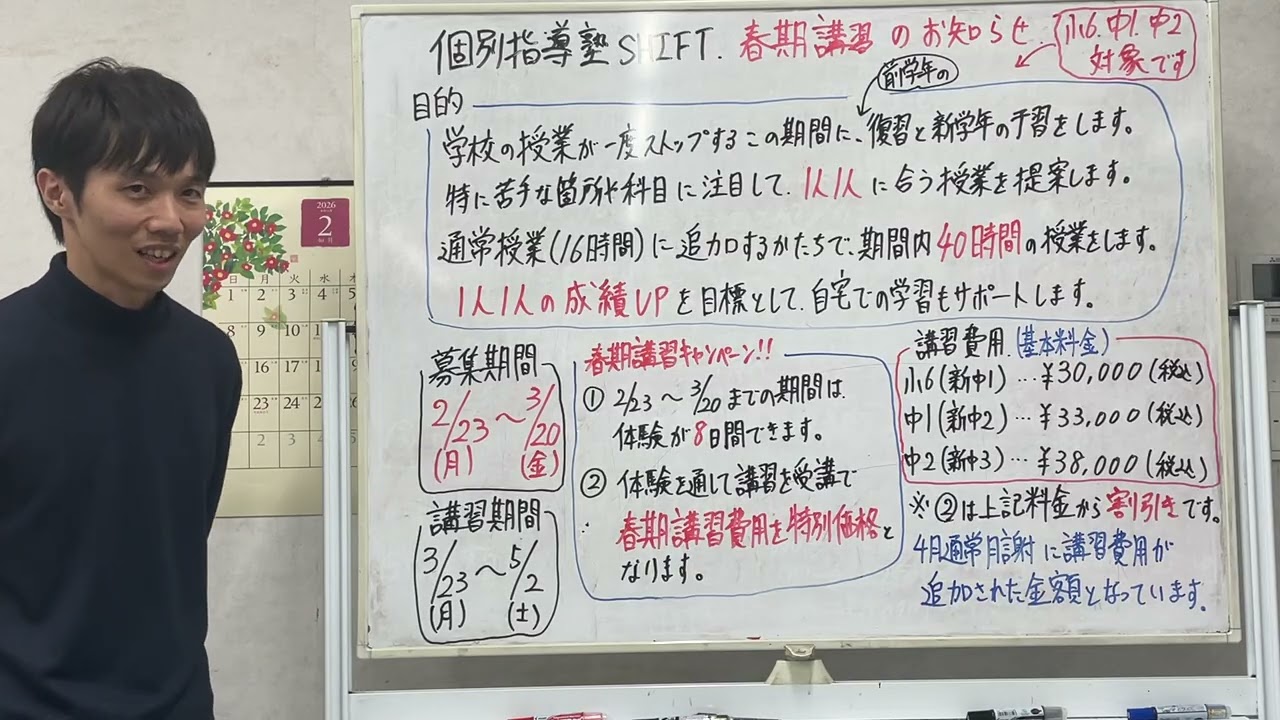 個別指導塾SHIFT. 春期講習のお知らせ
小6.中1.中2
対象です
前学年の
目的
学校の授業が一度ストップするこの期間に、復習と新学年の予習をします。
特に苦手な箇所や科目に注目して、1人1人に合う授業を提案します。
通常授業(16時間)に追加するかたちで、期間内40時間の授業をします。
1人1人の成績UPを目標として、自宅での学習もサポートします。
募集期間
2/23〜3/20
(月) (金)
講習期間
3/23〜5/2
(月) (土)
春期講習キャンペーン!!
① 2/23〜3/20までの期間は、
体験が8日間できます。
② 体験を通して講習を受講で
春期講習費用を特別価格と
なります。
講習費用.(基本料金)
小6(新中1)…¥30,000(税込)
中1(新中2)…¥33,000(税込)
中2(新中3)…¥38,000(税込)
※②は上記料金から割引きです。
4月通常月謝に講習費用が
追加された金額となっています。
2026
2
日 月 火 水 木
1 2 3 4 5
8 9 10
16 17
23 24
2 3